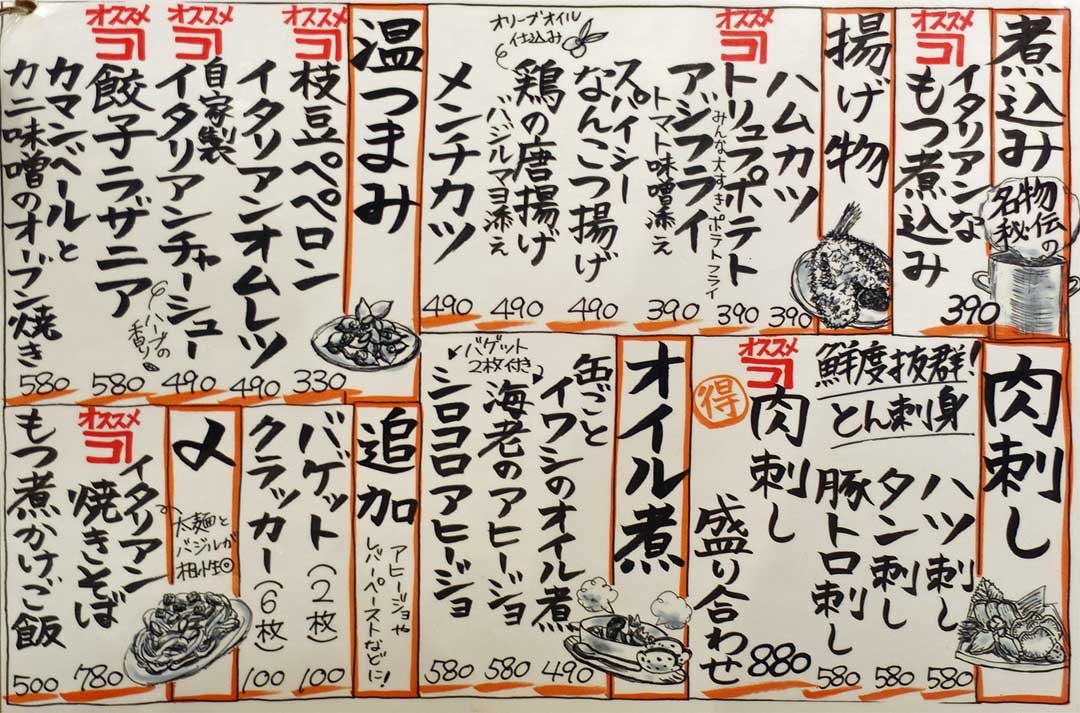 煮込み
名物
秘伝の
オススメ
コレ
イタリアンな
もつ煮込み
390
揚げ物
ハムカツ
390
オススメ
コレ
トリュフポテト
みんな大すきポテトフライ
390
アジフライ
トマト味噌添え
390
スパイシー
なんこつ揚げ
490
オリーブオイル
仕込み
鶏の唐揚げ
バジルマヨ添え
490
メンチカツ
490
温つまみ
オススメ
コレ
枝豆ペペロン
330
イタリアンオムレツ
490
オススメ
コレ
自家製
イタリアンチャーシュー
ハーブの
香り
490
オススメ
コレ
餃子ラザニア
580
カマンベールと
カニ味噌のオーブン焼き
580
肉刺し
鮮度抜群!
とん刺身
ハツ刺し
580
タン刺し
580
豚トロ刺し
580
オススメ
コレ
得
肉刺し
盛り合わせ
880
オイル煮
缶ごと
イワシのオイル煮
490
バゲット
2枚付き
海老のアヒージョ
580
シロコロアヒージョ
580
追加
アヒージョや
レバーペーストなどに!
バゲット(2枚)
100
クラッカー(6枚)
100
〆
オススメ
コレ
イタリアン
焼きそば
太麺と
バジルが
相性◎
780
もつ煮かけご飯
500